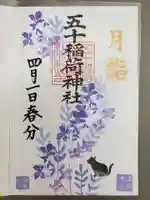 月詣
五十稲荷神社
四月一日春分